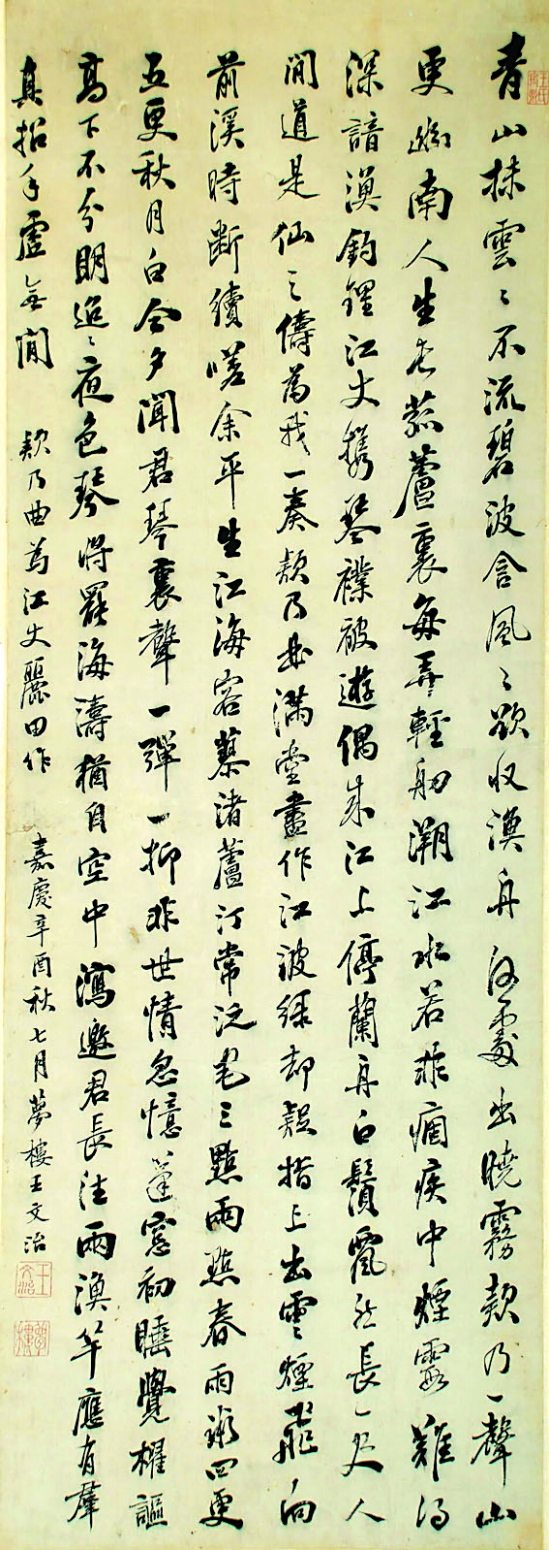 青山抹雲雲不流碧波含風風欲收漁舟何處出曉霧欸乃一聲山
更幽南人生長菰蘆裏每弄輕舠溯江水若非痼疾中煙霞難得
深諳漁釣理江丈携琴襆被遊偶來江上停蘭舟白鬚飄然長一尺人
間道是仙之儔為我一奏欸乃曲滿堂盡作江波綠却疑指上出雲煙飛向
前溪時斷續嗟余平生江海客蓼渚蘆汀常泛宅三點兩點春雨疎四更
五更秋月白今夕聞君琴裏聲一彈一抑非世情忽憶篷窓初睡覺櫂謳
高下不分明迢迢夜色琴將罷海濤猶自空中瀉邀君長注兩漁竿應有群
真招手虛無間
欸乃曲為江丈麗田作
嘉慶辛酉秋七月夢樓王文治